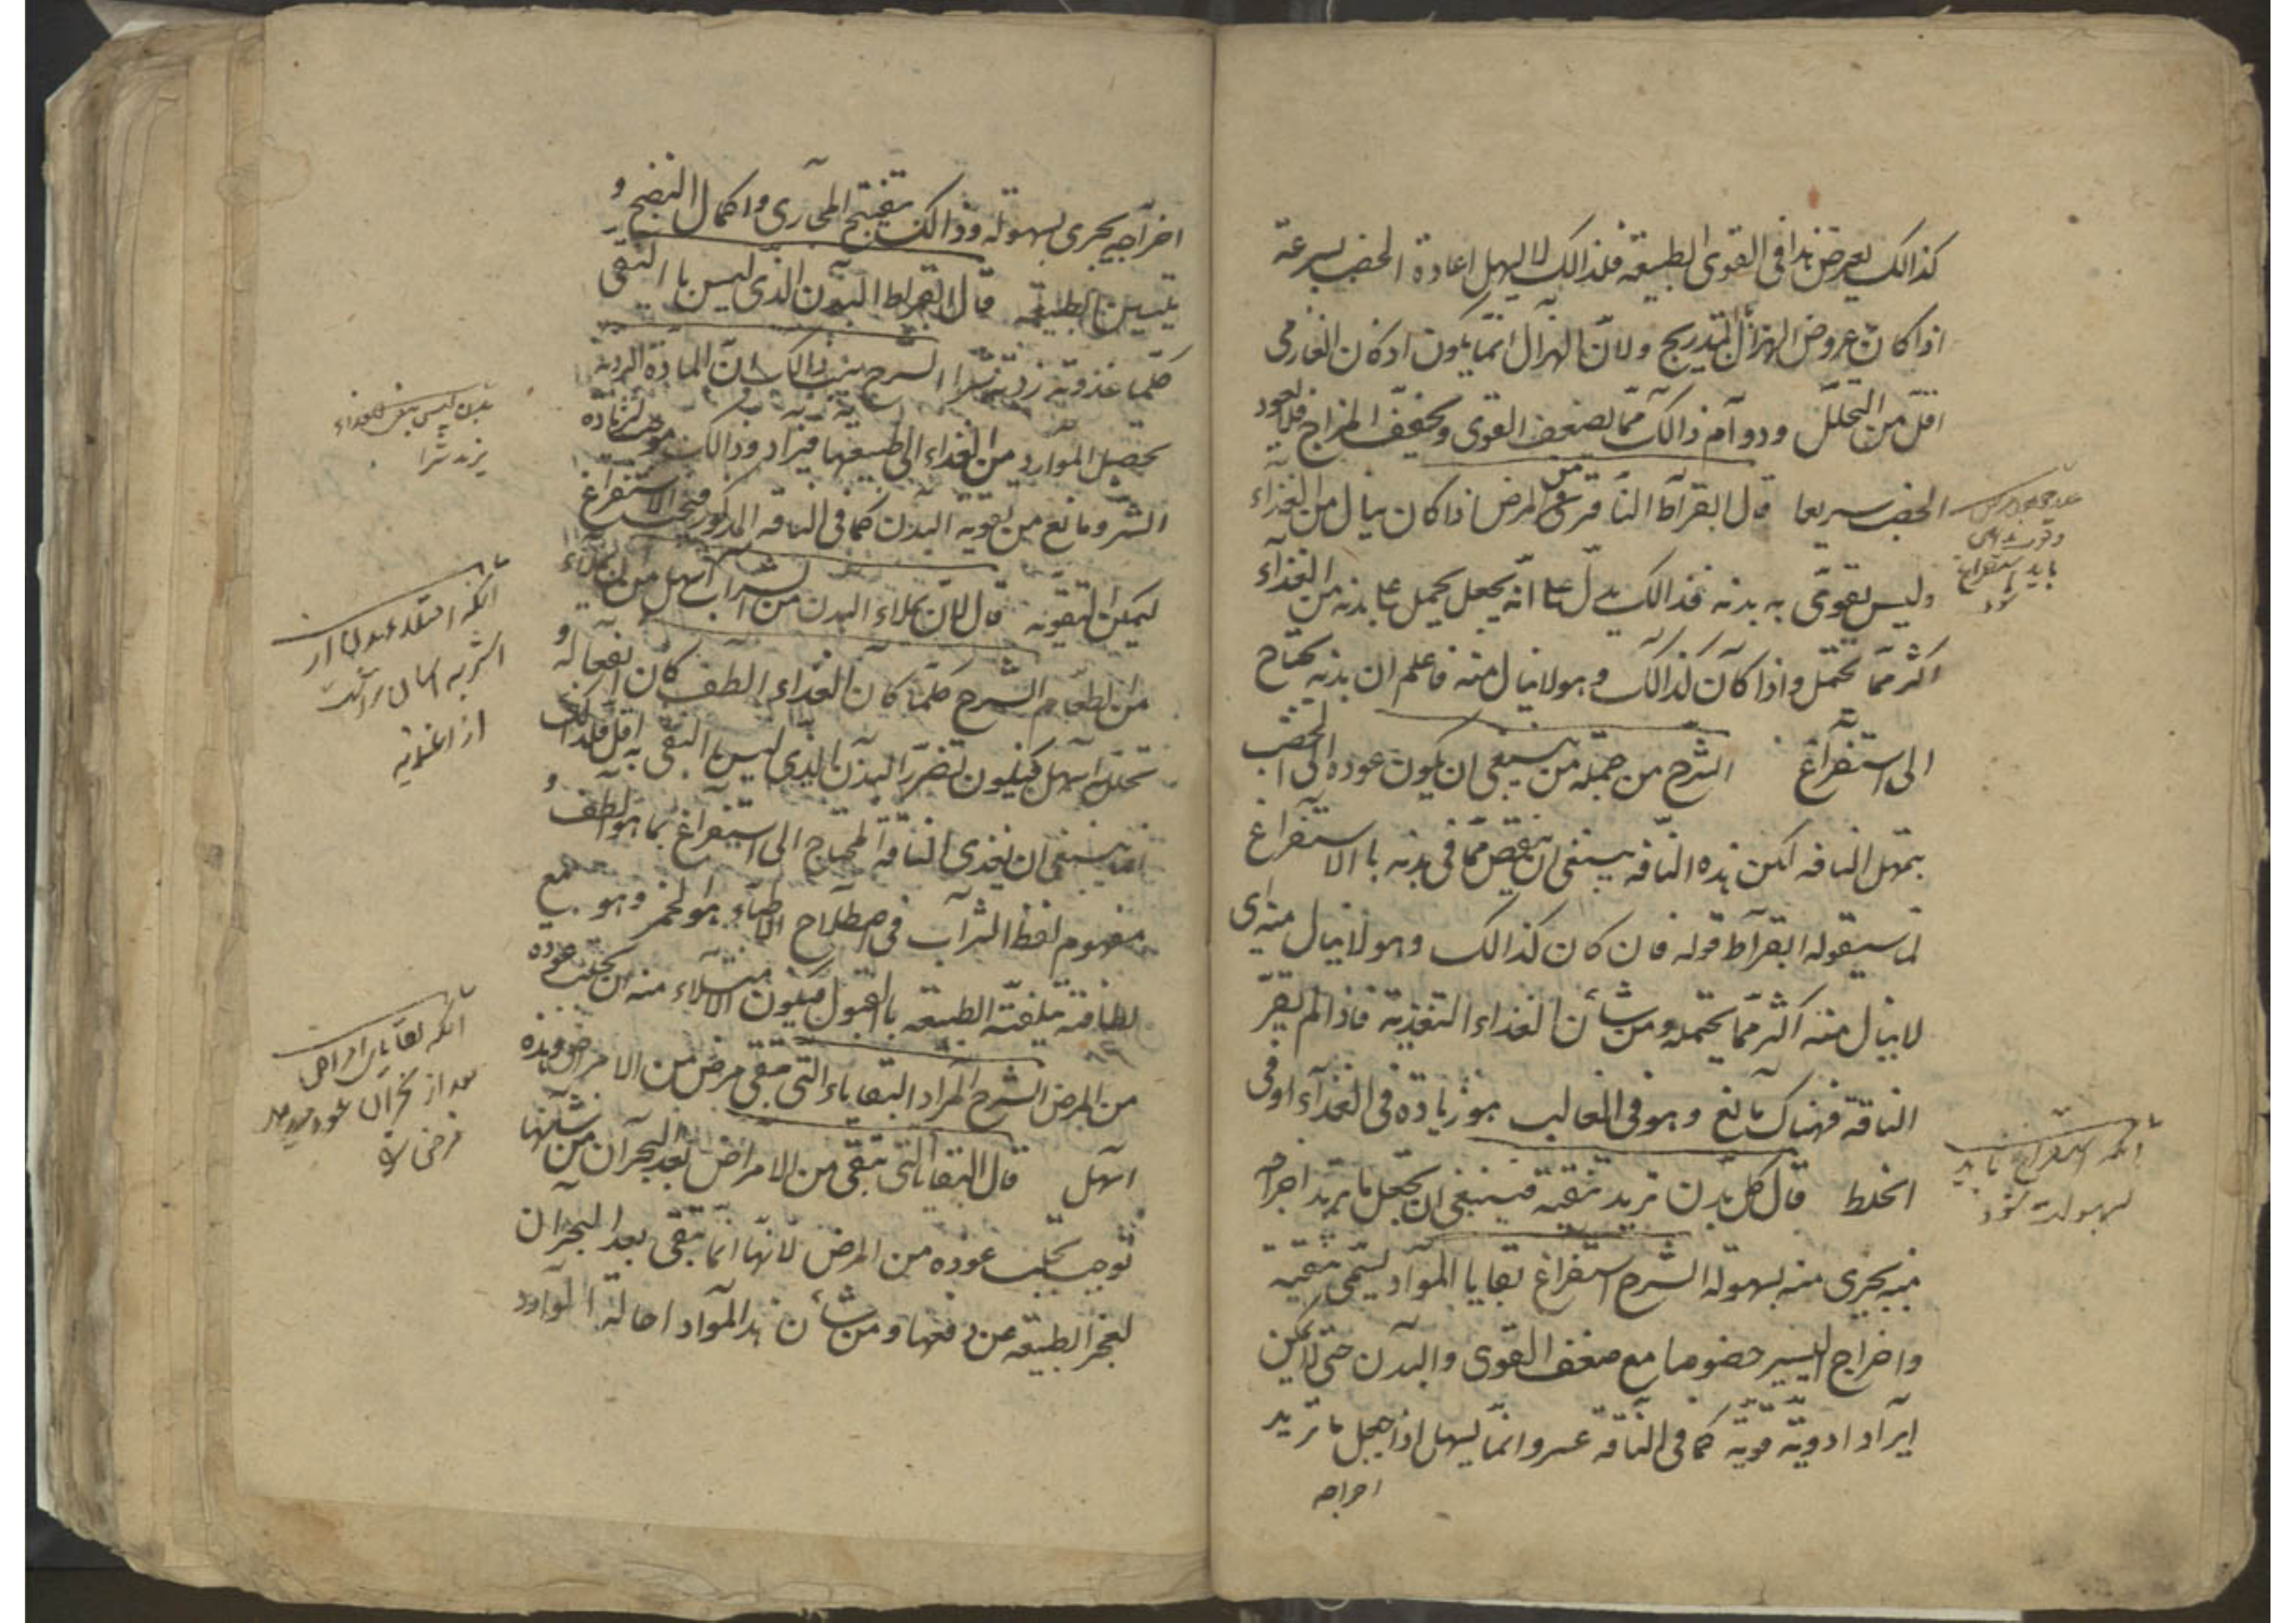 كذالك يعرض هذا فى القوى الطبيعه فلذالك لا يسهل اعادة الخصب بسرعة
اذا كان عروض الهزال بتدريج ولان الهزال انما يكون اذ كان الغاذى
اقل من التحلل ودوام ذالك مما يضعف القوى ويجفف المزاج فلا يعود
الخصب سريعا قال ابقراط الناقه من المرض اذا كان ينال من الغذاء
وليس يقوى به بدنه فذالك يدل على انه يجعل يحمل على بدنه من الغذاء
اكثر مما يحتمل واذا كان كذالك وهو لا ينال منه فاعلم ان بدنه يحتاج
الى استفراغ الشرح من جملة من ينبغى ان يكون عوده الى الخصب
بتمهل الناقه لكن هذه الناقه ينبغى ان ينقص مما فى بدنه با الاستفراغ
لما سيقوله ابقراط قوله فان كان كذالك وهو لا ينال منه اى
لا ينال منه اكثر مما يحتمله ومن شأن الغذاء التغذية فاذا لم يقر
الناقة فهناك مانع وهو فى الغالب هو زيادة فى الغذاء او فى
الخلط قال كل بدن تريد تنقيته فينبغى ان تجعل ما تريد اخراجه
منه يجرى منه بسهولة الشرح استفراغ بقايا المواد يسمى تنقية
واخراج اليسير خصوصا مع ضعف القوى والبدن حتى لا يمكن
ايراد ادوية قوية كما فى الناقه عسر وانما يسهل اذا جعل ما تريد
اخراجه
انكه استفراغ بايد
بسهولت شود
اخراجه يجرى بسهولة وذالك بتفتيح المجارى واكمال النضج و
تليين الطبيعه قال ابقراط البدن الذى ليس با النقى
كلما غذوته زدته شرا الشرح سبب ذالك ان المادة الردية
تحصيل الموارد من الغذاء الى طبيعتها فيزاد وذالك موجب لزيادة
الشر ومانع من تقوية البدن كما فى الناقه المذكور فيجب الاستفراغ
ليمكن التقوية قال لان يملاء البدن من الشراب اسهل من ان يملاء
من الطعام الشرح كلما كان الغذاء الطف كان انفعاله و
تحلله اسهل فيكون تضرر البدن الذى ليس با النقى به اقل فلذالك
انما ينبغى ان يغذى الناقه المحتاج الى استفراغ بما هو الطف و
مفهوم لفظ الشراب فى اصطلاح الاطباء هو الخمر وهو مع
لطافته تلقته الطبيعه با القبول فيكون الامتلاء منه ان يجلب عوده
من المرض الشرح المراد البقاياء التى تبقى مرض من الامراض وهذه
اسهل قال البقايا التى تبقى من الامراض بعد البحران من شأنها
توجب تجلب عوده من المرض لانها انما تبقى بعد البحران
لعجز الطبيعه عن دفعها ومن شأن هذ المواد احالة الموارد
بدن ليس بنقى الغذاء
يزيد شرا
از اغذيه
انكه بقاياى امراض
بعد از بحران